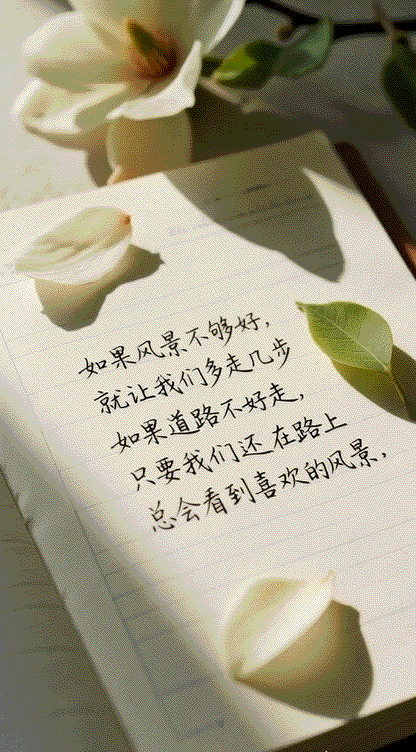 如果风景不够好,
就让我们多走几步
如果道路不好走,
只要我们还在路上
总会看到喜欢的风景,